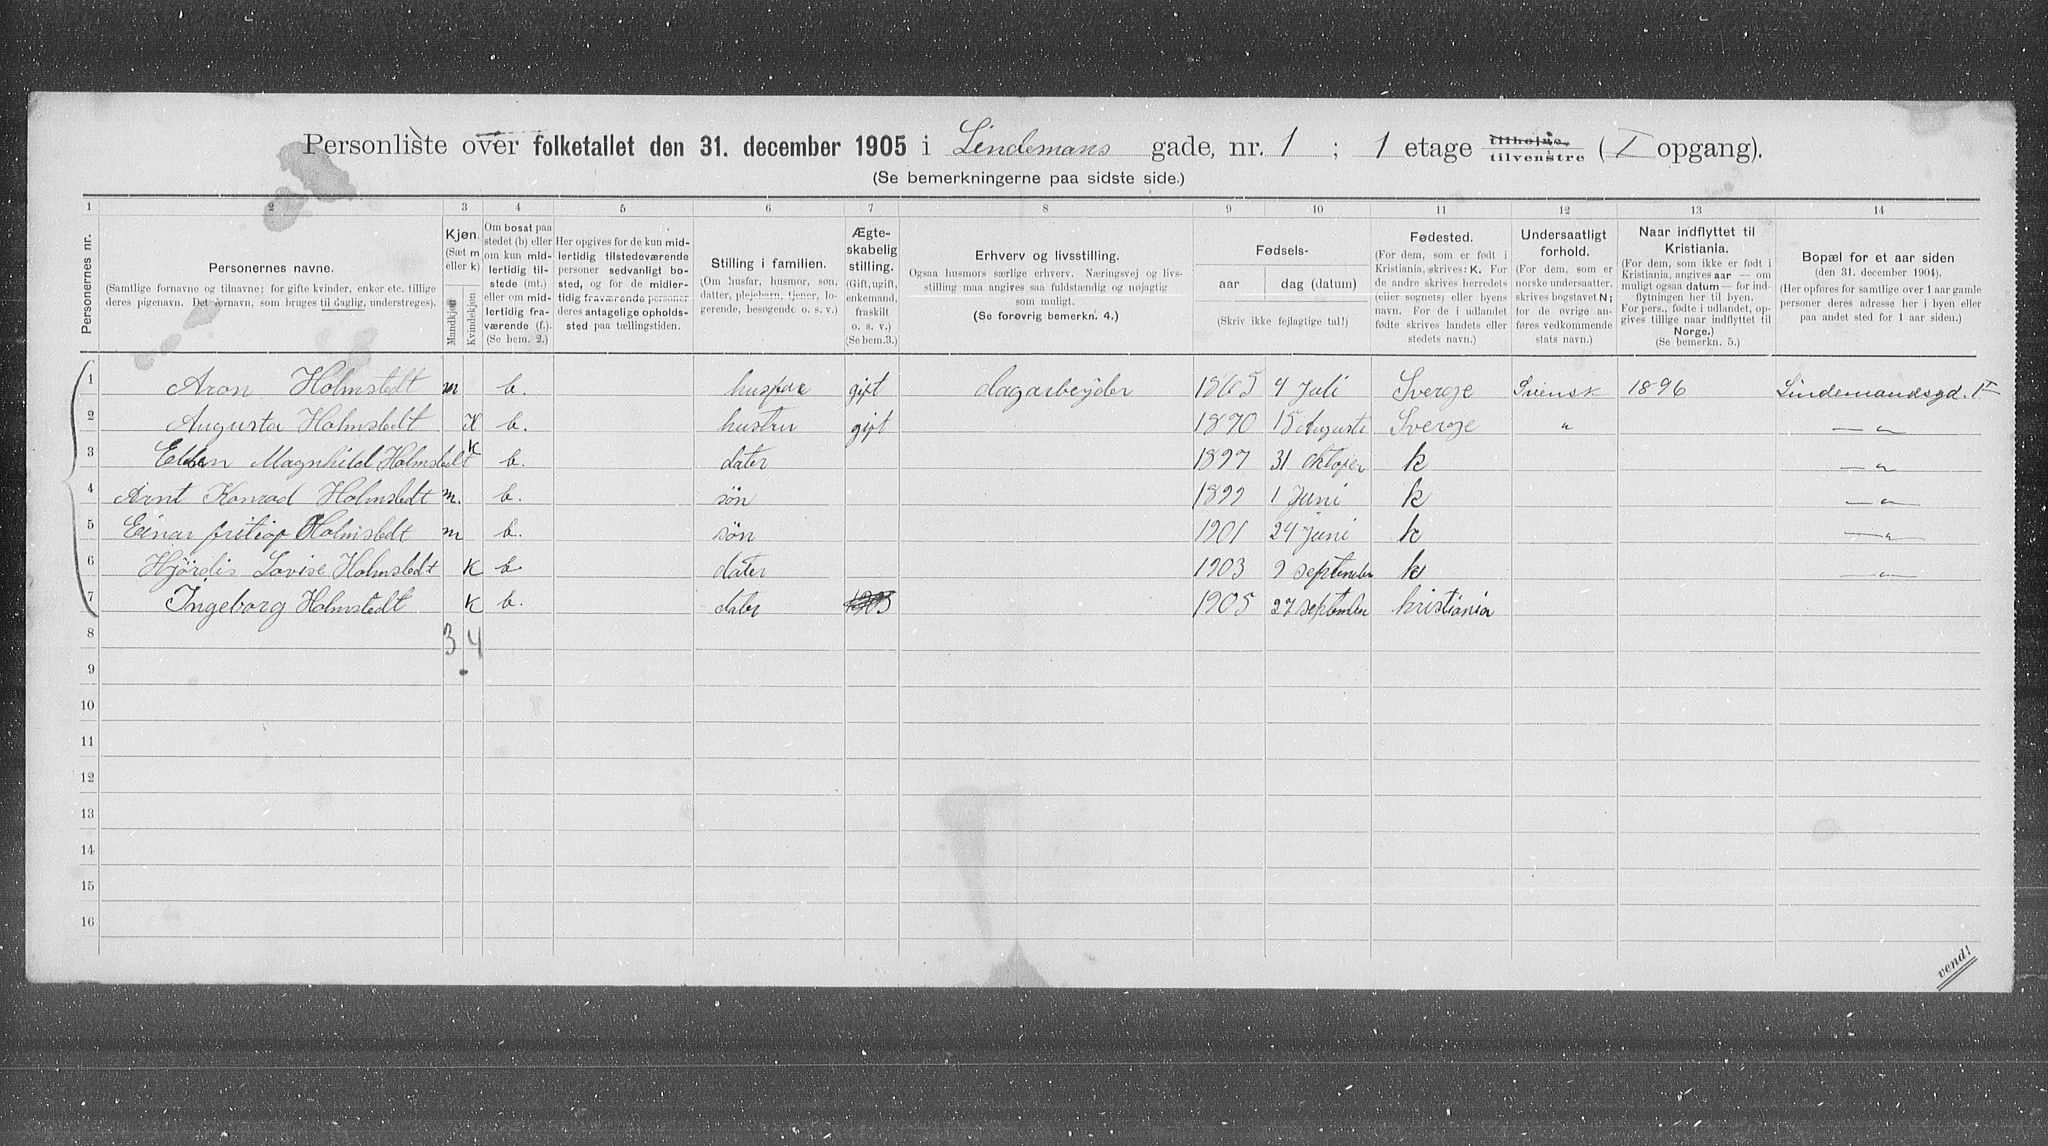 Personliste over folketallet den 31. december 1905 i Lindemans gade, nr. 1 ; 1 etage tilhøire, tilvenstre ( I opgang).
(Se bemerkningerne paa sidste side.)
1 2 3 4 5 6 7 8 9 10 11 12 13 14
Personernes nr.
Personernes navne.
(Samtlige fornavne og tilnavne; for gifte kvinder, enker etc. tillige
deres pigenavn. Det fornavn, som bruges til daglig, understreges).
Kjøn.
(Sæt m
eller k)
Mandkjøn
Kvindekjøn
Om bosat paa
stedet (b) eller
om kun mid-
lertidig til-
stede (mt.)
eller om mid-
lertidig fra-
værende (f.).
(Se bem. 2.)
Her opgives for de kun mid-
lertidig tilstedeværende
personer sedvanligt bo-
sted, og for de midler-
tidig fraværende personer
deres antagelige opholds-
sted paa tællingstiden.
Stilling i familien.
(Om husfar, husmor, søn,
datter, plejebarn, tjener, lo-
gerende, besøgende o. s. v.)
Ægte-
skabelig
stilling.
(Gift, ugift,
enkemand,
fraskilt
o. s. v.)
(Se bem.3.)
Erhverv og livsstilling.
Ogsaa husmors særlige erhverv. Næringsvej og livs-
stilling maa angives saa fuldstændig og nøjagtig
som muligt.
(Se forøvrig bemerkn. 4.)
Fødsels-
aar dag (datum)
(Skriv ikke fejlagtige tal!)
Fødested.
(For dem, som er født i
Kristiania, skrives: K. For
de andre skrives herredets
(eller sognets) eller byens
navn. For de i udlandet
fødte skrives landets eller
stedets navn.)
Undersaatligt
forhold.
(For dem, som er
norske undersaatter,
skrives bogstavet N;
for de øvrige an-
føres vedkommende
stats navn.)
Naar indflyttet til
Kristiania.
(For dem, som ikke er født i
Kristiania, angives aar — om
muligt ogsaa datum — for ind-
flytningen her til byen.
For pers., fødte i udlandet, op-
gives tillige naar indflyttet til
Norge.)
(Se bemerkn. 5.)
Bopæl for et aar siden
(den 31. december 1904).
(Her opføres for samtlige over 1 aar gamle
personer deres adresse her i byen eller
paa andet sted for 1 aar siden.)
1 Aron Holmstedt m b. husfar gift dagarbejder 1865 4 Juli Sverge Svensk 1896 Lindemandsgd. 1 I
2 Augusta Holmstedt K b. hustru gift 1870 15 Auguste Sverge " — " —
3 Ellen Magnhild Holmstedt K b. dater 1897 31 Oktoper k — " —
4 Arnt Konrad Holmstedt m. b. søn 1899 1 Juni k — " —
5 Einar fritiop Holmstedt m b. søn 1901 24 juni k — " —
6 Hjördis Lovise Holmstedt K b. dater 1903 9 september k — " —
7 Ingeborg Holmstedt K b. dater 1905 1905 27 september kristiania
8 3 4
9
10
11
12
13
14
15
16
vend!